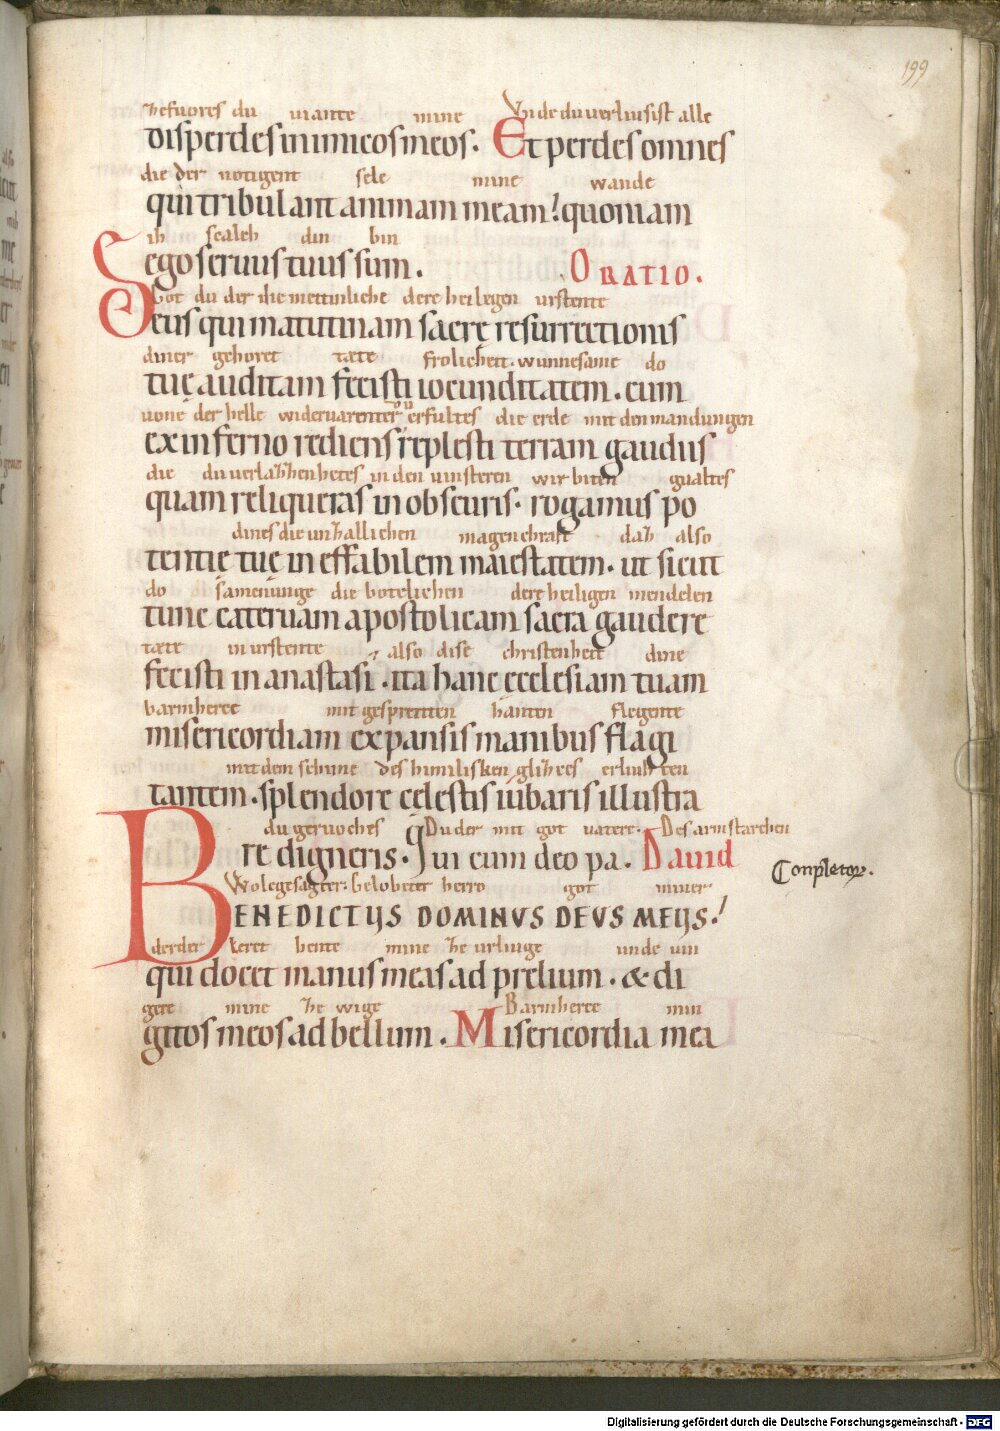 199
zefuores du uiante mine Vnde du uerliusist alle
disperdes inimicos meos. Et perdes omnes
die der notigent sele mine wande
qui tribulant animam meam! quoniam
ih scalch din bin
ego seruus tuus sum. ORATIO.
Got du der die mettinliche dere heilegen urstente
Deus qui matutinam sacrę resurrectionis
diner gehoret tæte frolicheit. wunnesame do
tuę auditam fecisti iocunditatem. cum
uone der helle wideruarenter du erfultes die erde mit den mandungen
ex inferno rediens replesti terram gaudiis
die du uerlazzen hetes in den uinsteren wir biten gualtes
quam reliqueras in obscuris. rogamus po
dines die unzallichen magenchraft daz also
tentię tuę in effabilem maiestatem. ut sicut
do samenunge die botelichen dere heiligen mendelen
tunc cateruam apostolicam sacra gaudere
tæte in urstente also dise christenheit dine
fecisti in anastasi. ita hanc ęcclesiam tuam
barmherce mit gespreiten hanten flegente
misericordiam expansis manibus flagi
mit dem schine des himilisken glizces erliuhten
tantem. splendore cęlestis iubaris illustra
du geruoches Du der mit got uatere. Des armstarchen
re digneris. Qui cum deo pa. Dauid
Conpletor.
Wolegesagter: Gelobeter herro got miner
BENEDICTUS DOMINVS DEVS MEUS!
der der leret hente mine ze urliuge unde uin
qui docet manus meas ad prelium. & di
gere mine ze wige Barmherce min
gitos meos ad bellum. Misericordia mea
Digitalisierung gefördert durch die Deutsche Forschungsgemeinschaft - DFG